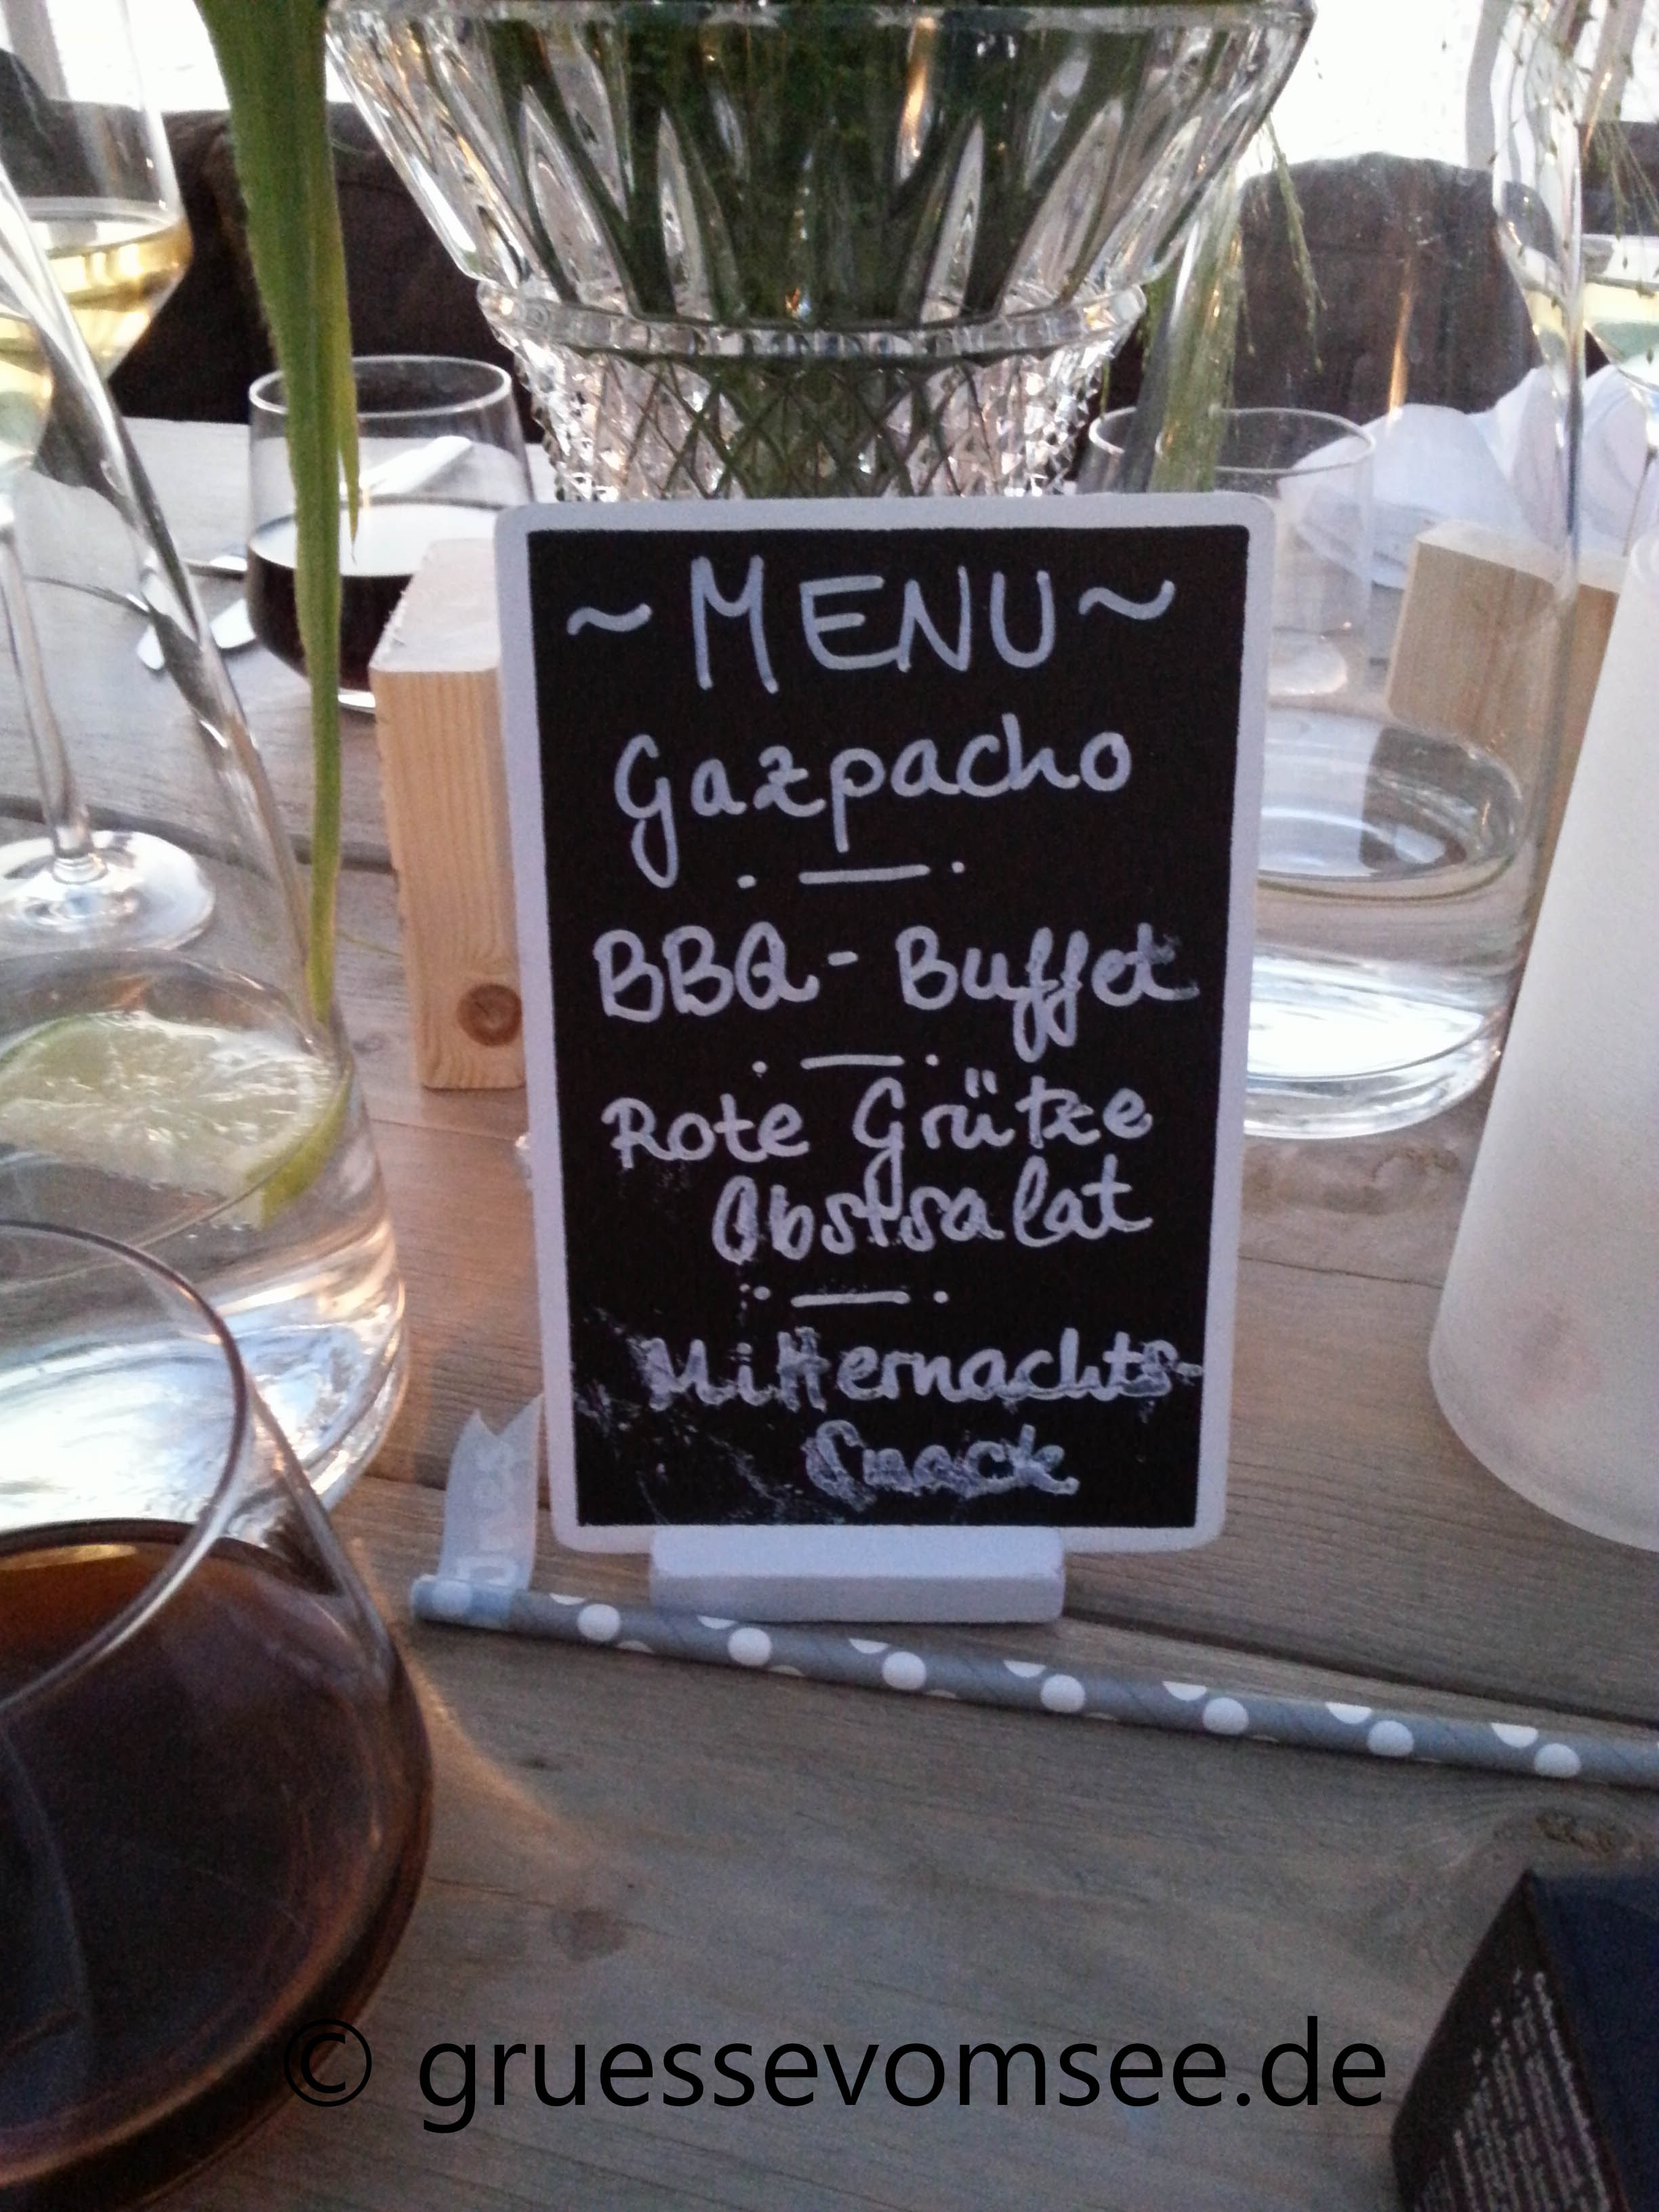 ~ MENU ~
Gazpacho
. — .
BBQ - Buffet
. — .
Rote Grütze
Obstsalat
. — .
Mitternachts-
Snack
© gruessevomsee.de